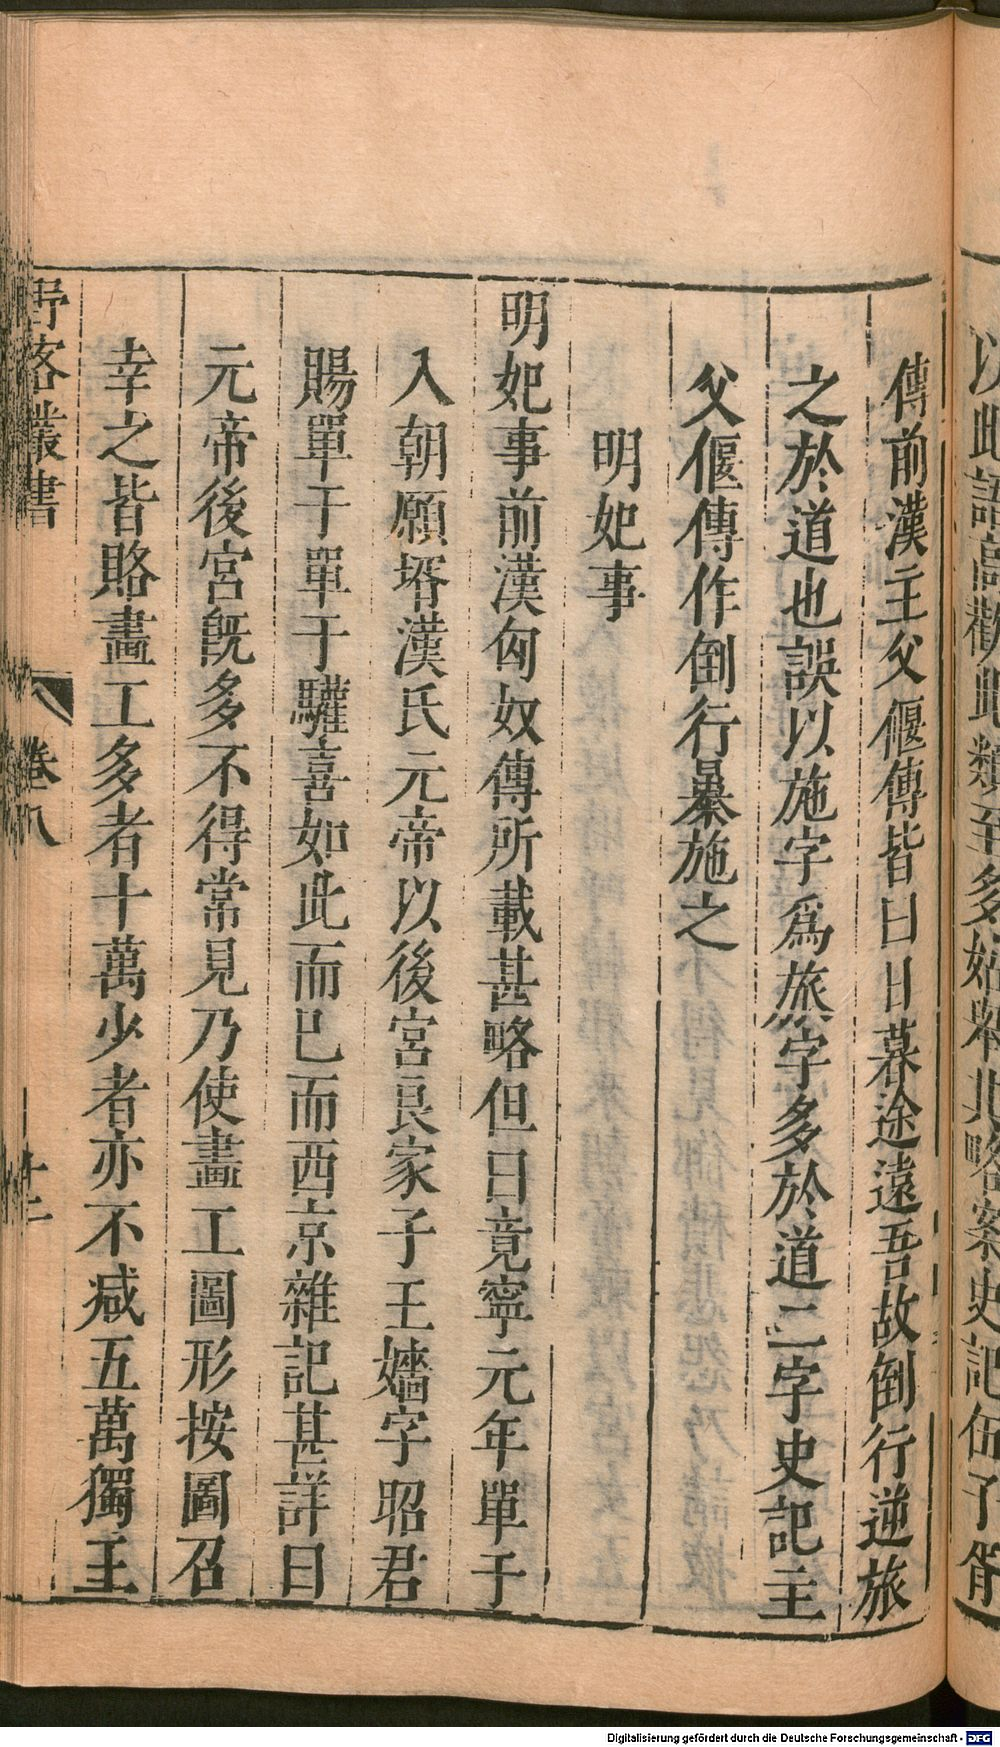 以此語高勸此類至多姑舉其略案史記伍子胥
傳前漢主父偃傳皆曰日暮途遠吾故倒行逆旅
之於道也誤以施字爲旅字多於道二字史記主
父偃傳作倒行暴施之
明妃事
明妃事前漢匈奴傳所載甚略但曰竟寧元年單于
入朝願壻漢氏元帝以後宮良家子王嬙字昭君
賜單于單于驩喜如此而已而西京雜記甚詳曰
元帝後宮旣多不得常見乃使畫工圖形按圖召
幸之皆賂畫工多者十萬少者亦不减五萬獨王
野客叢書 卷八 十二
Digitalisierung gefördert durch die Deutsche Forschungsgemeinschaft - DFG